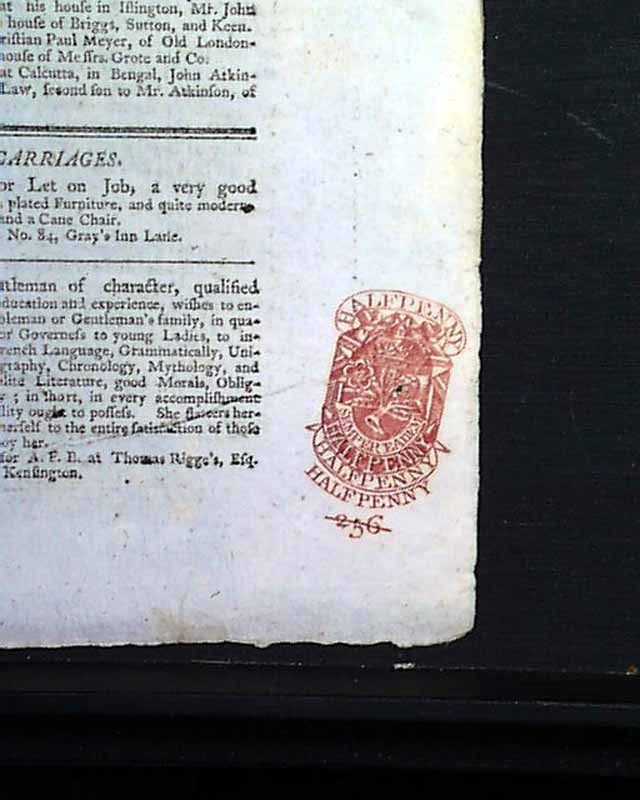 at his house in Iſlington, Mr. John
house of Briggs, Sutton, and Keen.
riſtian Paul Meyer, of Old London-
houſe of Meſſrs. Grote and Co.
at Calcutta, in Bengal, John Atkin-
Law, ſecond ſon to Mr. Atkinſon, of
CARRIAGES.
or Let on Job, a very good
plated Furniture, and quite modern,
and a Cane Chair.
No. 84, Gray's Inn Lane.
tleman of character, qualified
education and experience, wiſhes to en-
bleman or Gentleman's family, in qua-
or Governeſs to young Ladies, to in-
rench Language, Grammatically, Uni-
graphy, Chronology, Mythology, and
lite Literature, good Morals, Oblig-
y; in ſhort, in every accompliſhment
lity ought to poſſeſs. She flatters her-
herſelf to the entire ſatisfaction of thoſe
oy her.
for A. F. B. at Thomas Rigge's, Eſq.
Kenſington.
HALFPENNY
SEMPER EADEM
HALFPENNY
HALFPENNY
HALFPENNY
256